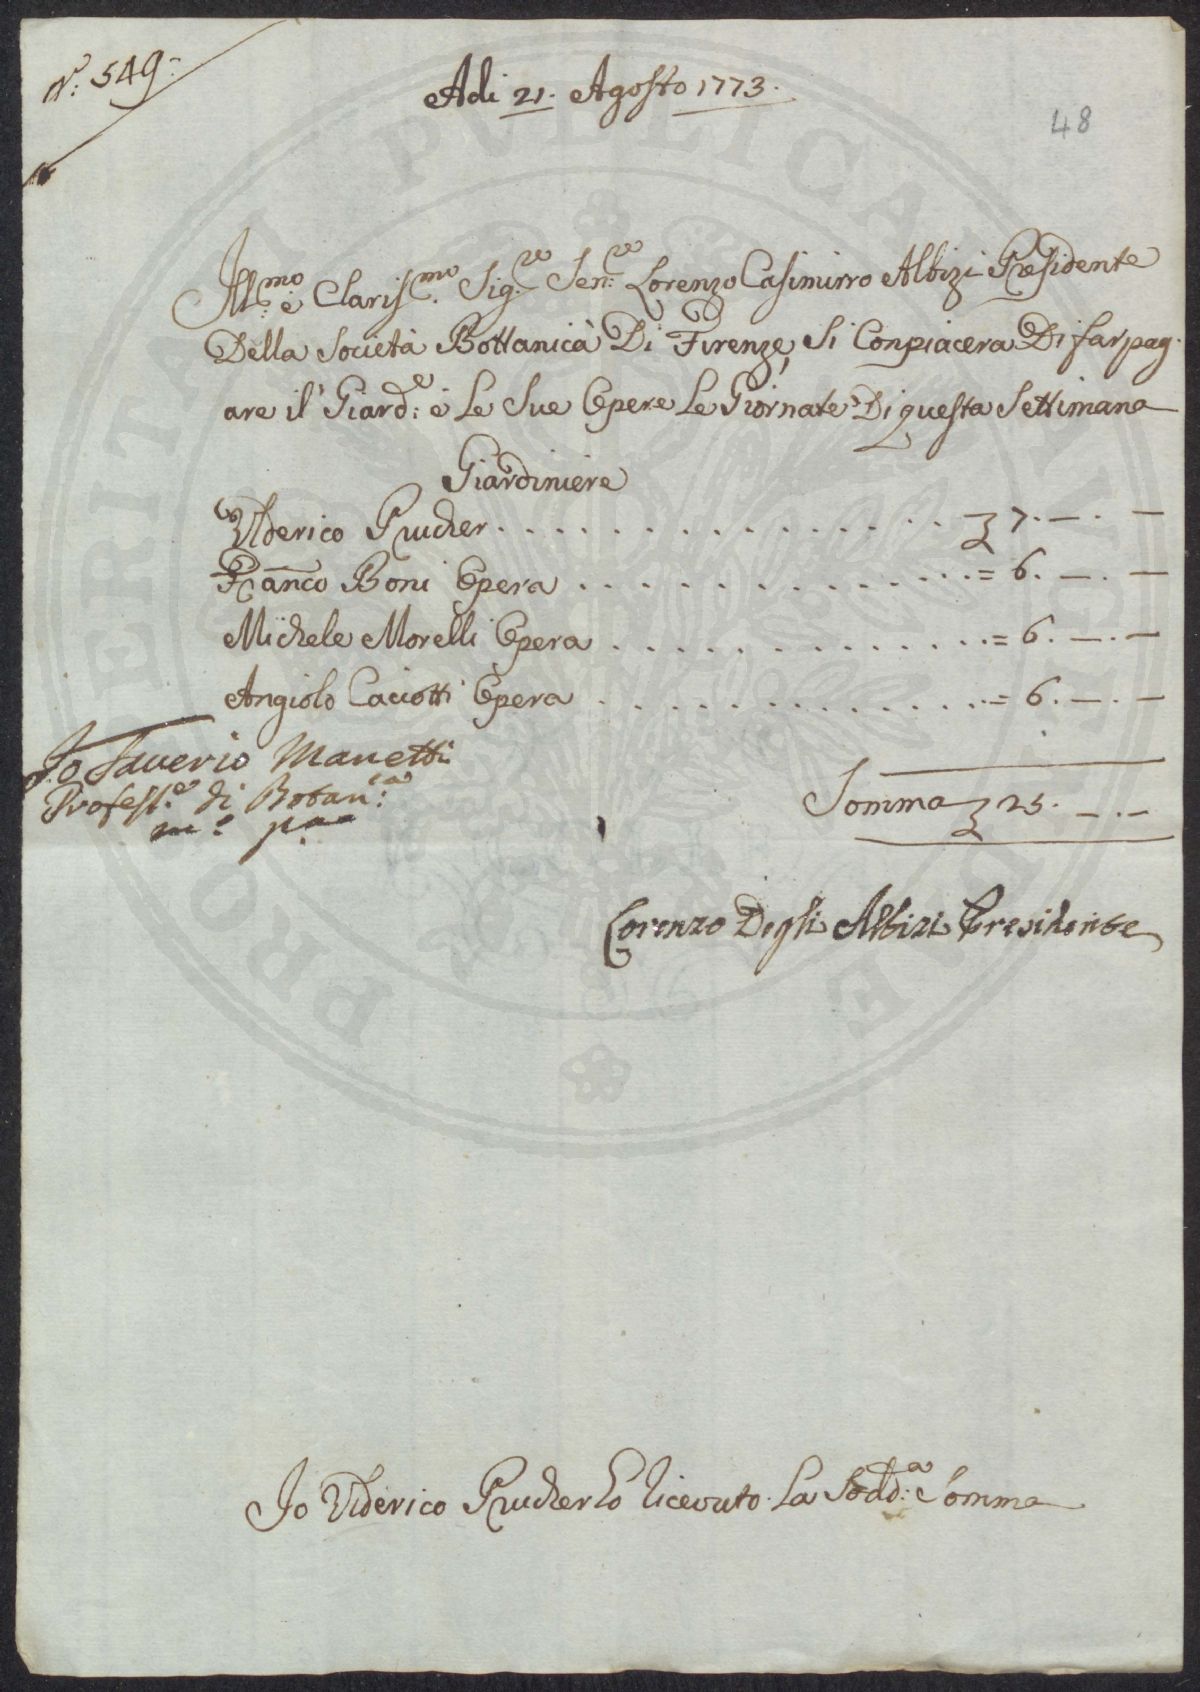 N.º 549.
Adi 21. Agosto 1773.
48
Ill.mo e Claris.mo Sig.re Sen.re Lorenzo Casimirro Albizi Presidente
Della Società Bottanicà Di Firenze, Si Conpiacera Di far pag
are il Giard.e e Le Sue Opere Le Giornate Di questa Settimana
Giardiniere
Ulderico Prucher . . . . . . . . . . . . . . . 7. — . —
Franco Boni Opera . . . . . . . . . . . . . = 6. — . —
Michele Morelli Opera . . . . . . . . . . . . = 6. — . —
Angiolo Caciotti Opera . . . . . . . . . . . . = 6. — . —
Io Saverio Manetti
Profess.e di Botan.ca
m.o p.a
Somma 25. — . —
Lorenzo Degli Albizi Presidente
Io Ulderico Prucher ho ricevuto La Sodd.a Somma
PROSPERITATI PUBLICAE AUGENDAE